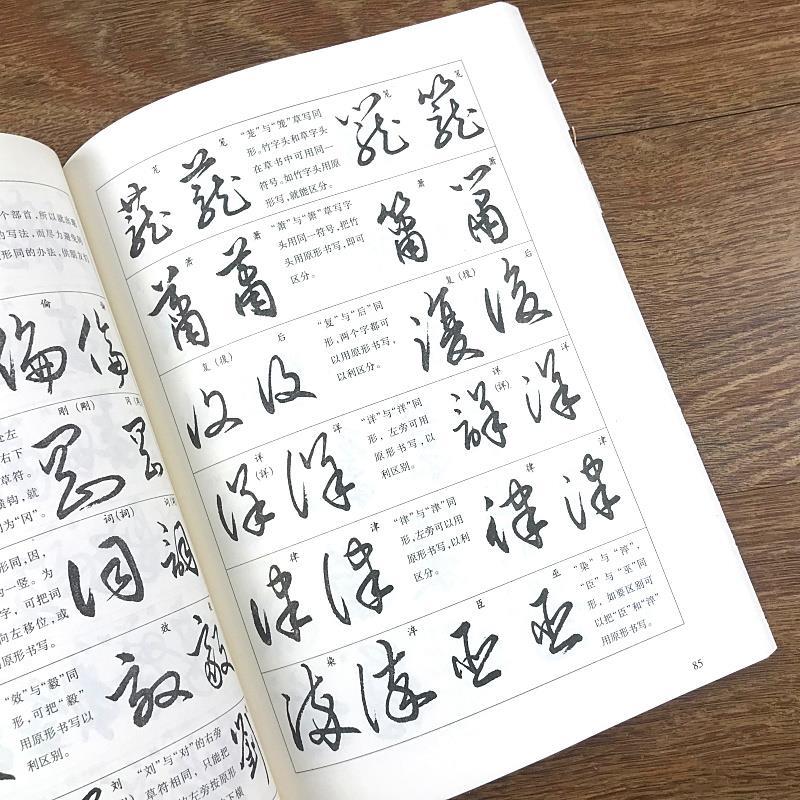 个部首，所以就出现
的写法，而尽力避免
形同的办法，供朋友们
倫
刚（剛）
左
右下
草符。
横钩，就
为“冈”。
词（詞）
形同，因，
的一竖。为
字，可把词
向左移位，或
原形书写。
效
“效”与“毅”同
形，可把“毅”
用原形书写以
利区别。
刘
“刘”与“对”的右旁
草符相同，只能把
的左旁按原形
茏 笼
“茏”与“笼”草写同
形。竹字头和草字头
在草书中可用同一
符号。如竹字头用原
形写，就能区分。
笼 笼
萧 箫
“萧”与“箫”草写字
头用同一符号，把竹
头用原形书写，即可
区分。
箫 萧
复（復） 后
“复”与“后”同
形，两个字都可
以用原形书写，
以利区分。
复（復） 后
详（詳） 洋
“详”与“洋”同
形，左旁可用
原形书写，以
利区别。
详（詳） 洋
律 津
“律”与“津”同
形，左旁可以用
原形书写，以利
区分。
律 津
染 淬 臣 亚
“染”与“淬”，
“臣”与“亚”同
形，如要区别可
以把“臣”和“淬”
用原形书写。
85